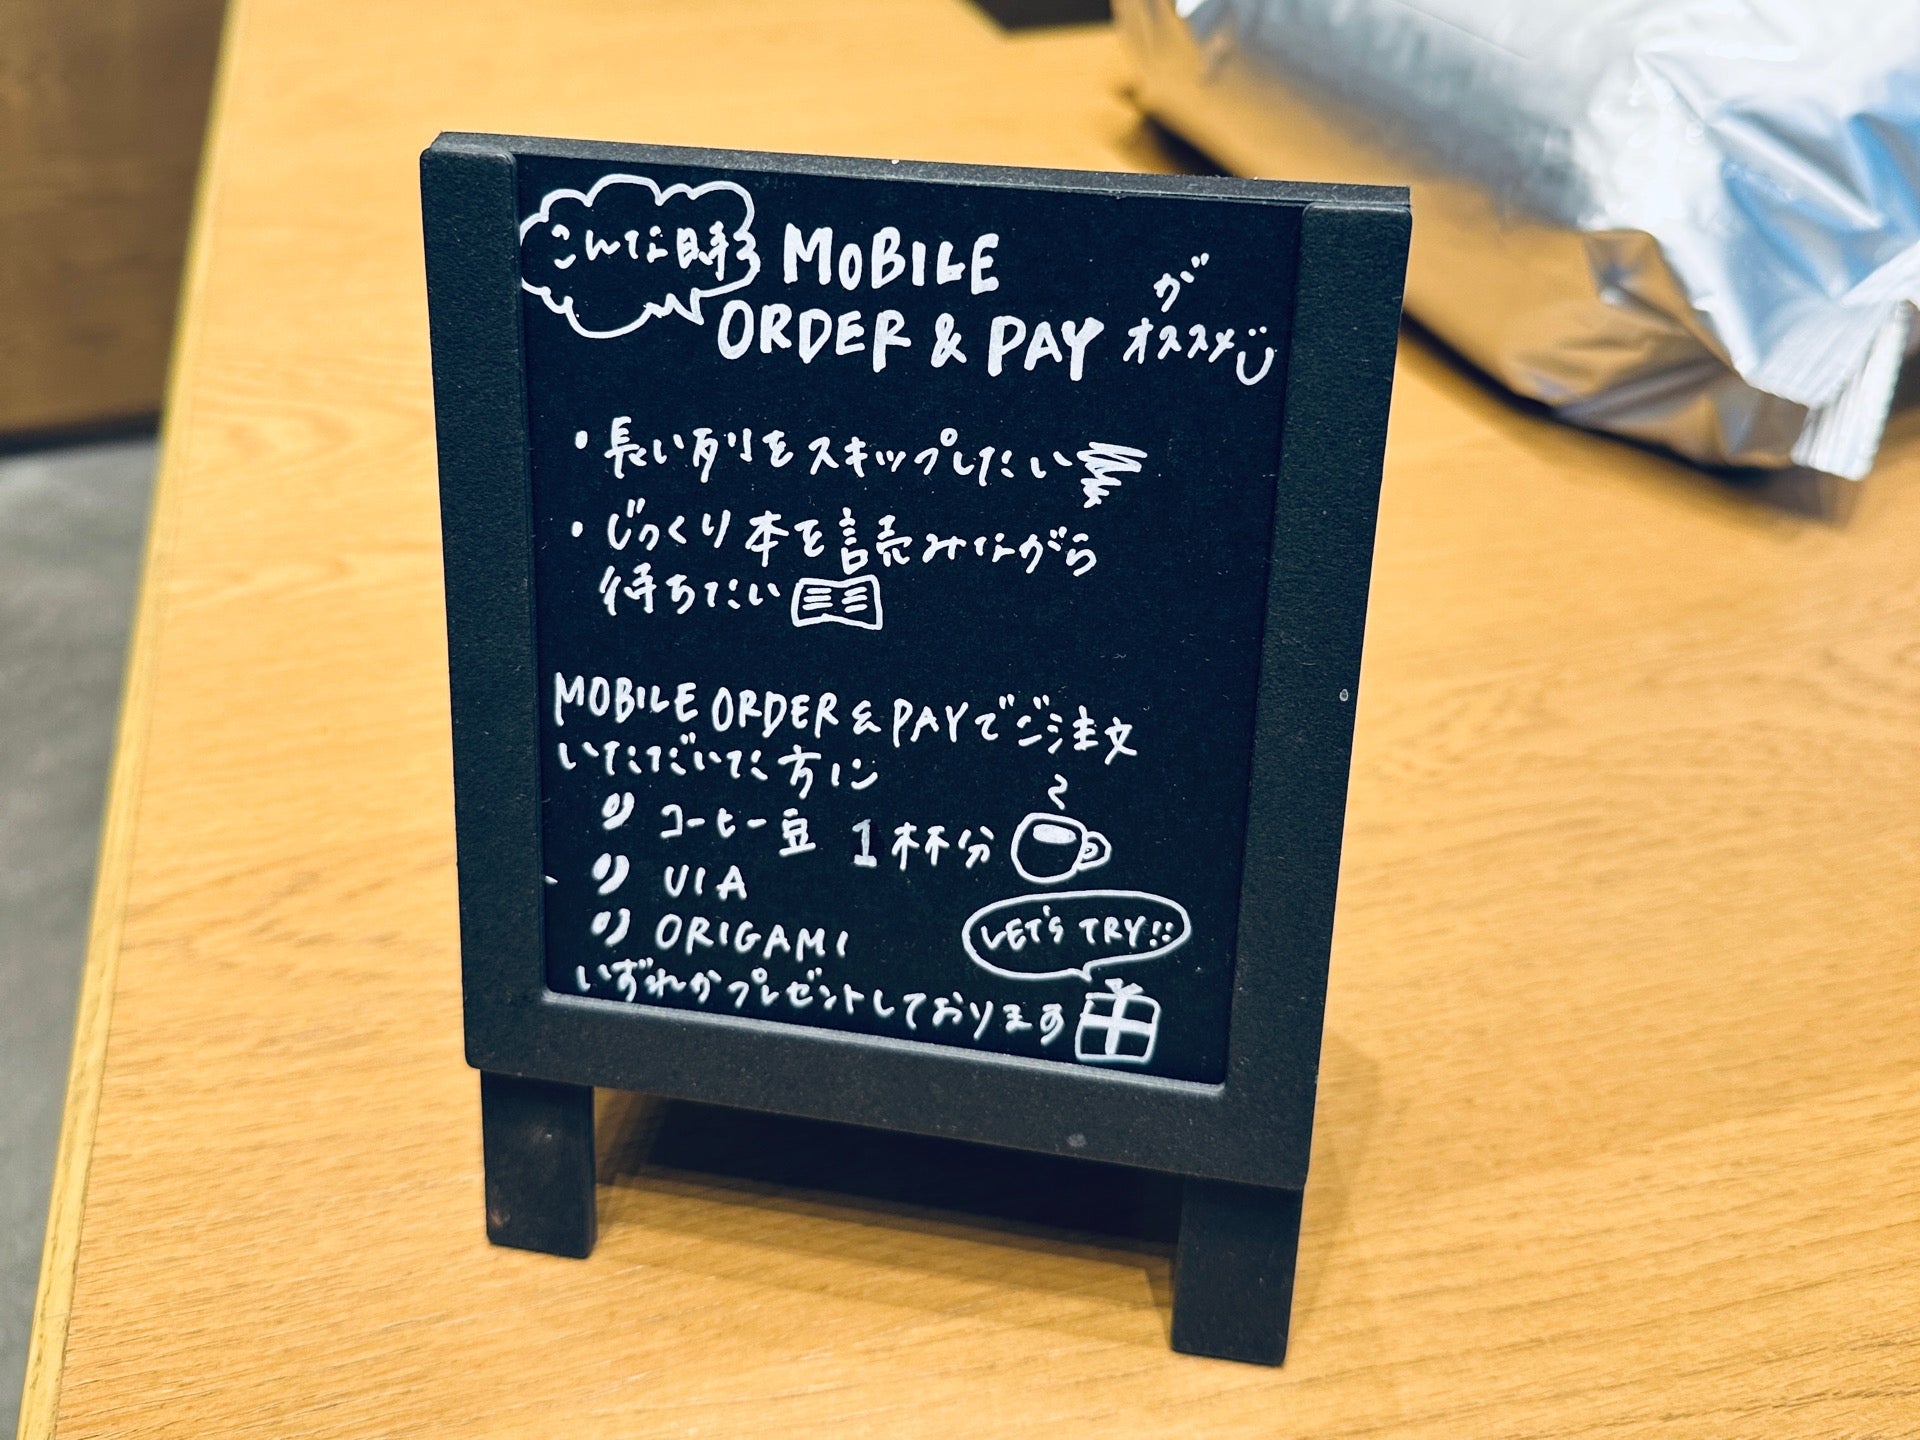 こんな時 MOBILE
ORDER & PAY が
オススメ
・長い列をスキップしたい
・じっくり本を読みながら
待ちたい
MOBILE ORDER & PAYでご注文
いただいた方に
コーヒー豆 1杯分
VIA
ORIGAMI
LET'S TRY!!
いずれかプレゼントしております